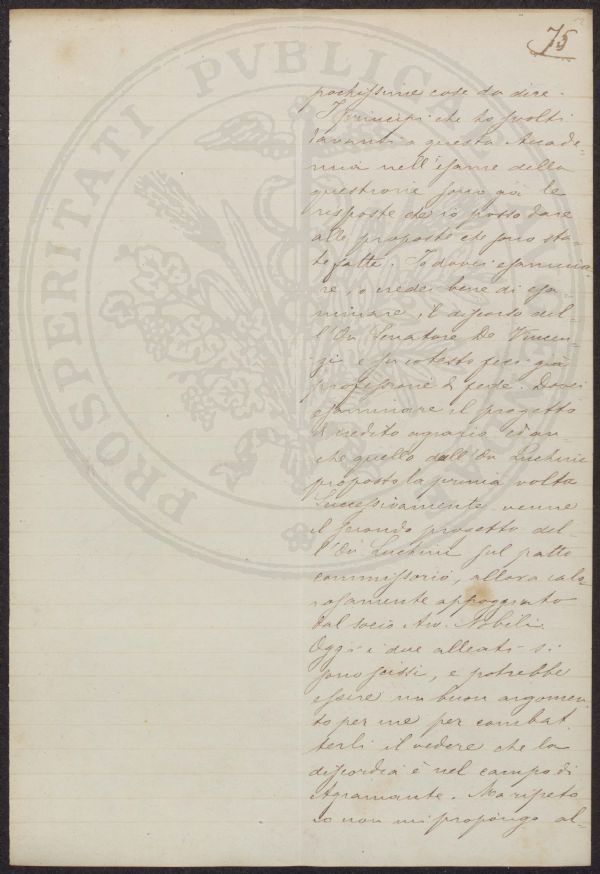 75
PROSPERITATI PVBLICAE
pochissime cose da dire.
I principi che ho svolti
davanti a questa Accade-
mia nell'esame della
questione sono già le
risposte che io posso dare
alle proposte che sono sta-
te fatte. Io dovei esamina
re, o credei bene di esa-
minare, il discorso del-
l'On Senatore De Vincen-
zi e su cotesto feci già
professione di fede. Dovei
esaminare il progetto
di credito agrario ed an-
che quello dell'On Luchini
proposto la prima volta
Successivamente venne
il secondo progetto del-
l'On Luchini sul patto
commissorio, allora calo
rosamente appoggiato
dal socio Avv. Nobili.
Oggi i due alleati si
sono scissi, e potrebbe
essere un buon argomen
to per me per combat
terli il vedere che la
discordia è nel campo di
Agramante. Ma ripeto
io non mi propongo al-